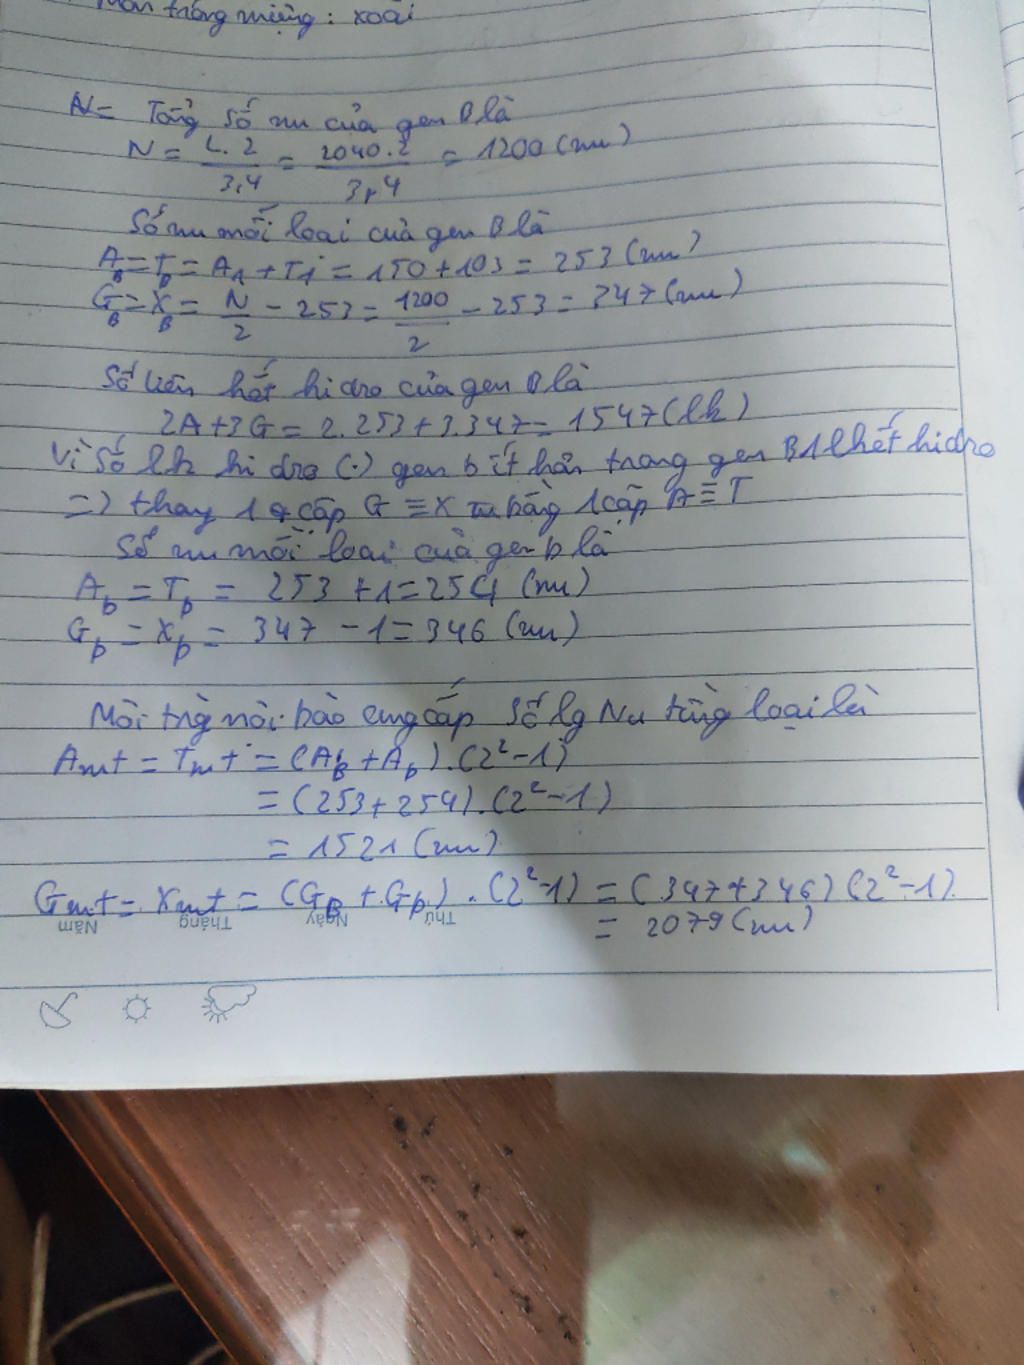 trong miệng: xoài
N = Tổng số nu của gen B là
N = L.2/3,4 = 2040.2/3,4 = 1200 (nu)
Số nu mỗi loại của gen B là
A_B = T_B = A1 + T1 = 150 + 103 = 253 (nu)
G_B = X_B = N/2 - 253 = 1200/2 - 253 = 347 (nu)
Số liên kết hidro của gen B là
2A + 3G = 2.253 + 3.347 = 1547 (lk)
Vì số lk hidro (.) gen b ít hơn trong gen B 1 lk hết hidro
=) thay 1 cặp G ≡ X bằng 1 cặp A ≡ T
Số nu mỗi loại của gen b là
A_b = T_b = 253 + 1 = 254 (nu)
G_b = X_b = 347 - 1 = 346 (nu)
Môi trg nội bào cung cấp số lg Nu từng loại là
Amt = Tmt = (A_B + A_b).(2² - 1)
= (253 + 254).(2² - 1)
= 1521 (nu)
Gmt = Xmt = (G_B + G_b).(2² - 1) = (347 + 346)(2² - 1).
= 2079 (nu)
Thứ Ngày Tháng Năm